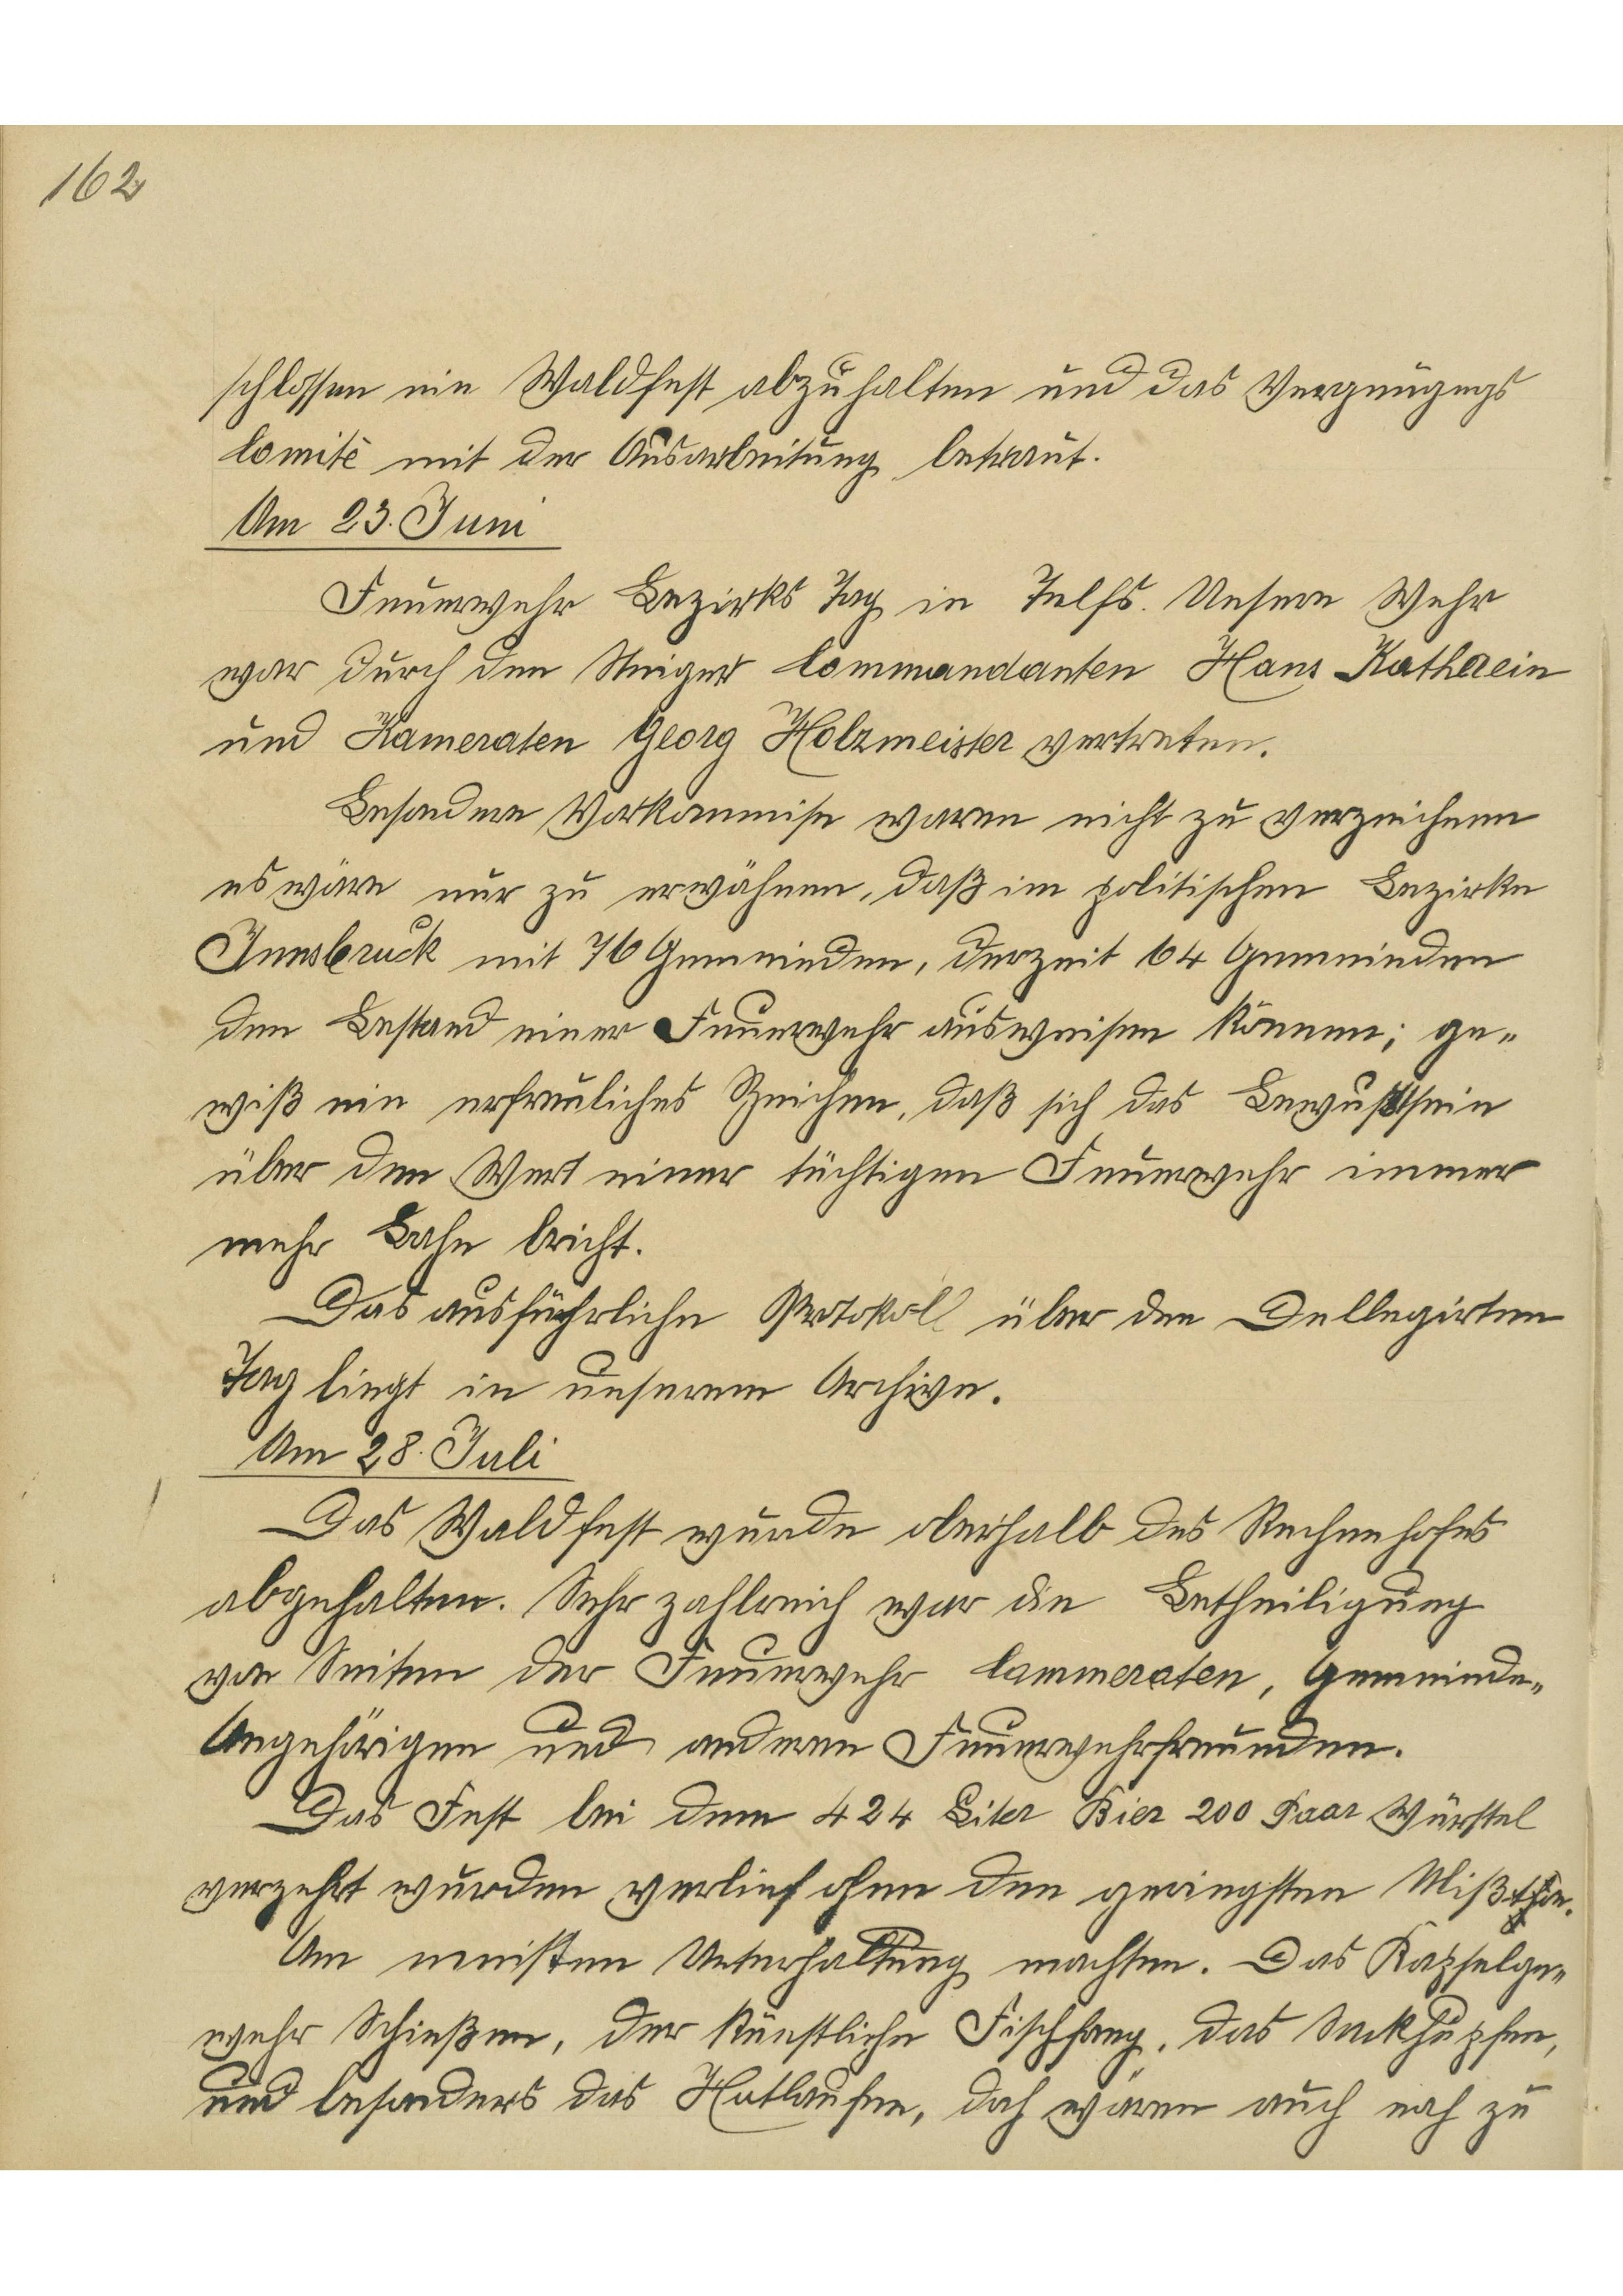 162
schlossen ein Waldfest abzuhalten und das Vergnügungs
comitè mit der Ausarbeitung betraut.
Am 23. Juni
Feuerwehr Bezirks Tag in Telfs. Unsere Wehr
war durch den Steiger Commandanten Hans Kathrein
und Kameraten Georg Holzmeister vertreten.
Besondere Vorkommise waren nicht zu verzeichnen
es wäre nur zu erwähnen, daß im politischen Bezirke
Innsbruck mit 76 Gemeinden, derzeit 64 Gemeinden
den Bestand einer Feuerwehr ausweisen können; ge„
wiß ein erfreuliches Zeichen, daß sich das Bewußtsein
über den Wert einer tüchtigen Feuerwehr immer
mehr Bahn bricht.
Das ausführliche Protokoll über den Dellegirten
Tag liegt in unserem Archive.
Am 28. Juli
Das Waldfest wurde oberhalb des Rechenhofes
abgehalten. Sehr zahlreich war die Betheiligung
von Seiten der Feuerwehr Cammeraten, Gemeinde„
Angehörigen und anderen Feuerwehrfreunden.
Das Fest bei dem 424 Liter Bier 200 Paar Würstel
verzehrt wurden verlief ohne den geringsten Mißton.
Am meisten Unterhaltung machten. Das Kapselge„
wehr Schießen, der künstliche Fischfang, das Sackhupfen,
und besonders das Hutlaufen, doch wären auch noch zu